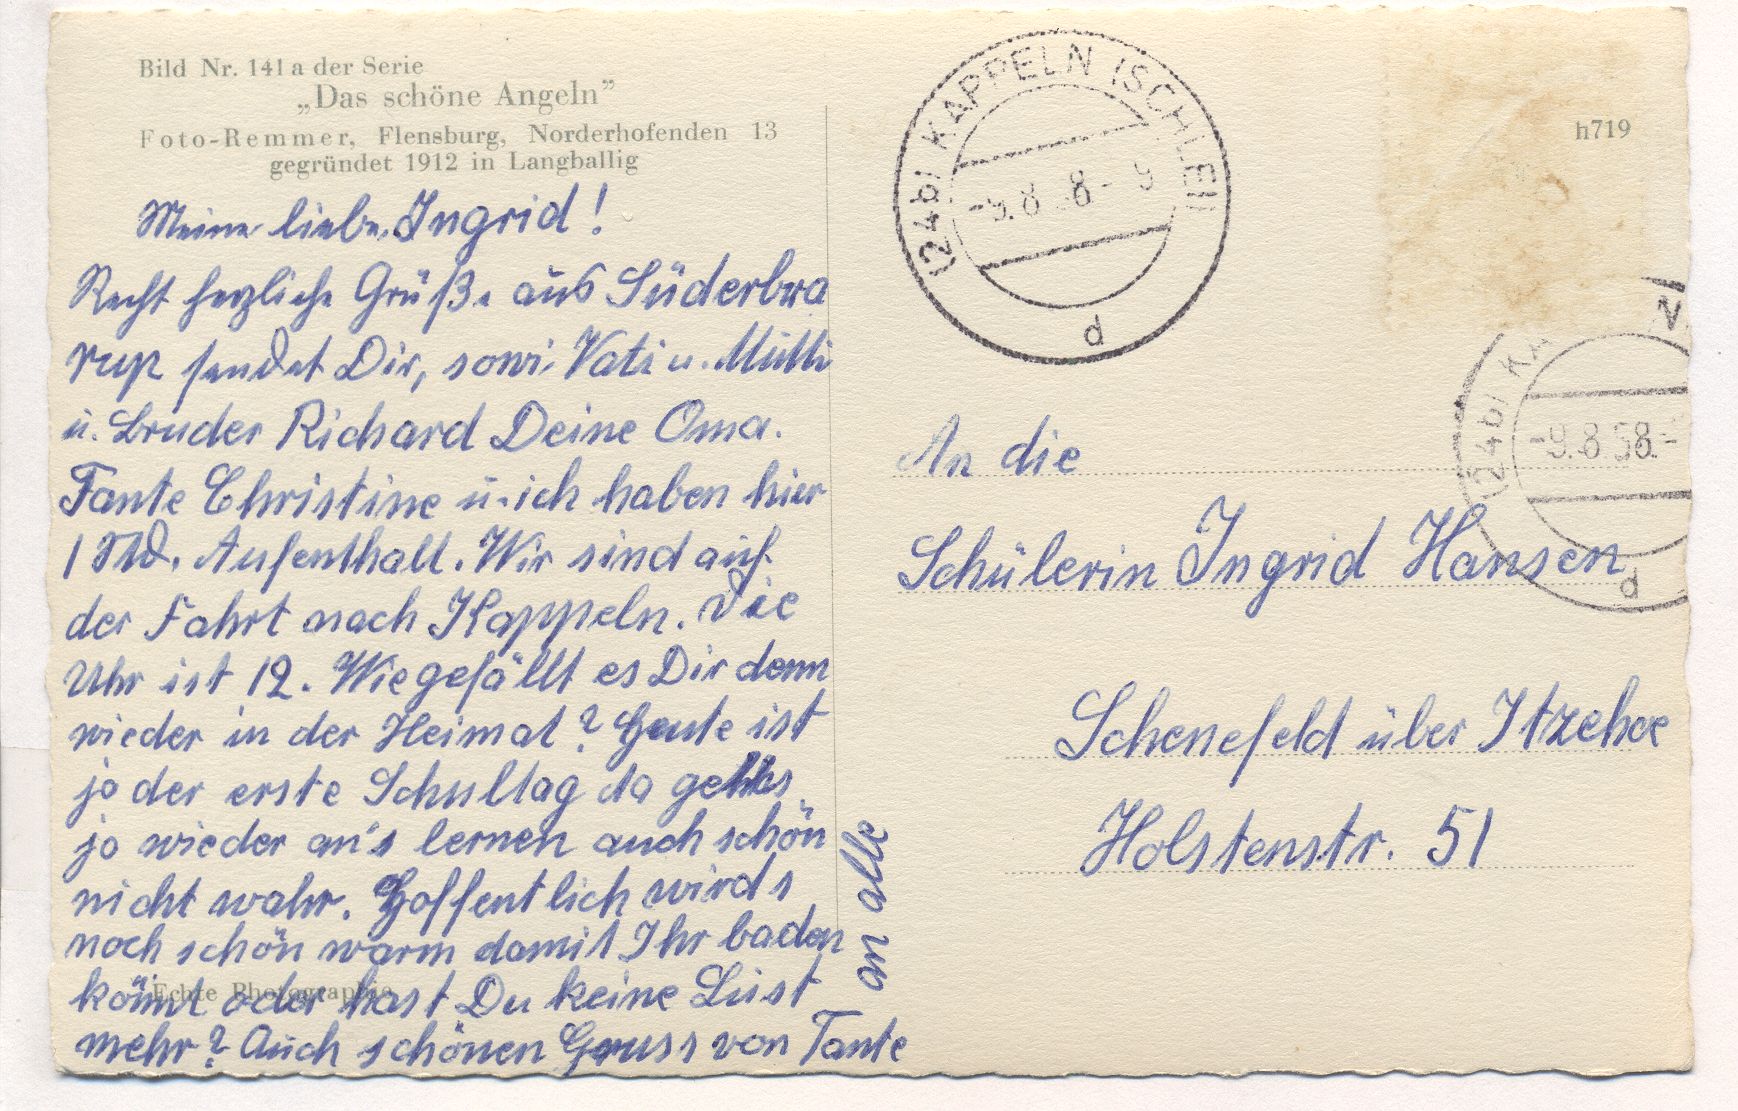 Bild Nr. 141 a der Serie
„Das schöne Angeln"
Foto-Remmer, Flensburg, Norderhofenden 13
gegründet 1912 in Langballig
h719
(24b) KAPPELN (SCHLEI)
-9.8.58-9
d
(24b) KA
-9.8.58.-
d
Meine liebe Ingrid!
Recht herzliche Grüße aus Süderbra
rup sendet Dir, sowie Vati u. Mutti
u. Bruder Richard Deine Oma.
Tante Christine u. ich haben hier
1 Std. Aufenthalt. Wir sind auf
der Fahrt nach Kappeln. Die
Uhr ist 12. Wie gefällt es Dir denn
wieder in der Heimat? Heute ist
ja der erste Schultag da geht's
ja wieder an's lernen auch schön
nicht wahr. Hoffentlich wird's
noch schön warm damit Ihr baden
könnt oder hast Du keine Lust
mehr? Auch schönen Gruss von Tante
an alle
Echte Photographie
An die
Schülerin Ingrid Hansen
Schenefeld über Itzehoe
Holstenstr. 51